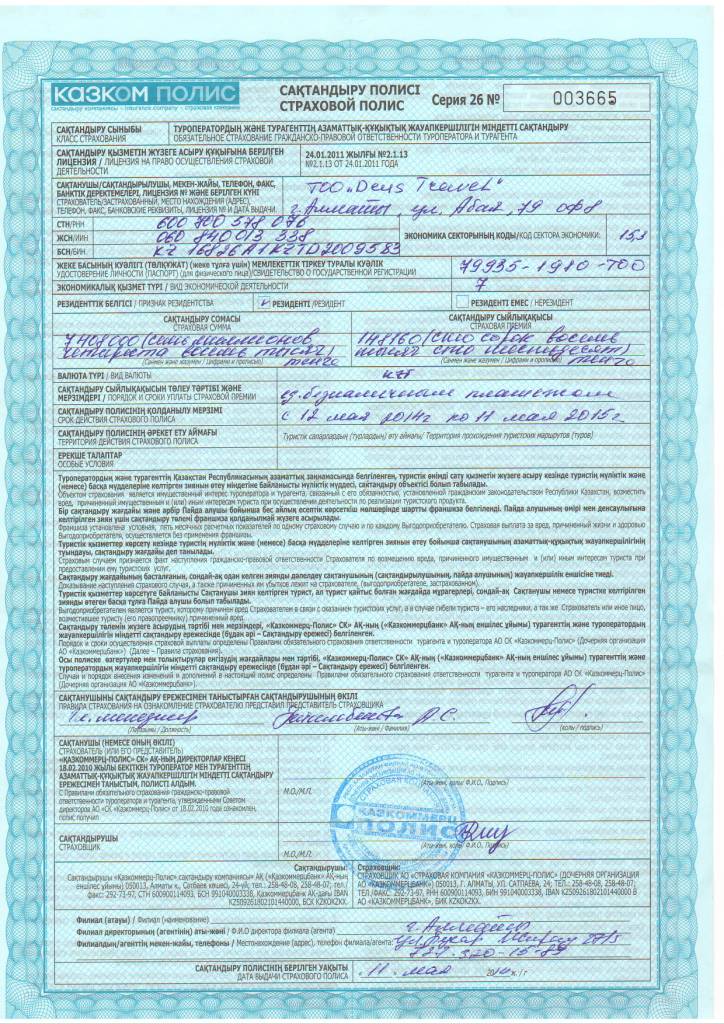 КАЗКОМ ПОЛИС
сақтандыру компаниясы - insurance company - страховая компания
САҚТАНДЫРУ ПОЛИСІ
СТРАХОВОЙ ПОЛИС
Серия 26 № 003665
САҚТАНДЫРУ СЫНЫБЫ
КЛАСС СТРАХОВАНИЯ
ТУРОПЕРАТОРДЫҢ ЖӘНЕ ТУРАГЕНТТІҢ АЗАМАТТЫҚ-ҚҰҚЫҚТЫҚ ЖАУАПКЕРШІЛІГІН МІНДЕТТІ САҚТАНДЫРУ
ОБЯЗАТЕЛЬНОЕ СТРАХОВАНИЕ ГРАЖДАНСКО-ПРАВОВОЙ ОТВЕТСТВЕННОСТИ ТУРОПЕРАТОРА И ТУРАГЕНТА
САҚТАНДЫРУ ҚЫЗМЕТІН ЖҮЗЕГЕ АСЫРУ ҚҰҚЫҒЫНА БЕРІЛГЕН
ЛИЦЕНЗИЯ / ЛИЦЕНЗИЯ НА ПРАВО ОСУЩЕСТВЛЕНИЯ СТРАХОВОЙ
ДЕЯТЕЛЬНОСТИ
24.01.2011 ЖЫЛҒЫ №2.1.13
№2.1.13 ОТ 24.01.2011 ГОДА
САҚТАНУШЫ/САҚТАНДЫРЫЛУШЫ, МЕКЕН-ЖАЙЫ, ТЕЛЕФОН, ФАКС,
БАНКТІК ДЕРЕКТЕМЕЛЕРІ, ЛИЦЕНЗИЯ № ЖӘНЕ БЕРІЛГЕН КҮНІ
СТРАХОВАТЕЛЬ/ЗАСТРАХОВАННЫЙ, МЕСТО НАХОЖДЕНИЯ (АДРЕС),
ТЕЛЕФОН, ФАКС, БАНКОВСКИЕ РЕКВИЗИТЫ, ЛИЦЕНЗИЯ № И ДАТА ВЫДАЧИ
ТОО „Deus Travel"
г. Алматы, ул. Абая, 79 оф 8
СТН/РНН 600 700 578 076
ЖСН/ИИН 060 840 013 338
БСН/БИН KZ 16826A1KZTD2009583
ЭКОНОМИКА СЕКТОРЫНЫҢ КОДЫ/КОД СЕКТОРА ЭКОНОМИКИ:
ЖЕКЕ БАСЫНЫҢ КУӘЛІГІ (ТӨЛҚҰЖАТ) (жеке тұлға үшін) МЕМЛЕКЕТТІК ТІРКЕУ ТУРАЛЫ КУӘЛІК
УДОСТОВЕРЕНИЕ ЛИЧНОСТИ (ПАСПОРТ) (для физического лица)/СВИДЕТЕЛЬСТВО О ГОСУДАРСТВЕННОЙ РЕГИСТРАЦИИ
79935-1910-ТОО
ЭКОНОМИКАЛЫҚ ҚЫЗМЕТ ТҮРІ / ВИД ЭКОНОМИЧЕСКОЙ ДЕЯТЕЛЬНОСТИ 7
РЕЗИДЕНТТІК БЕЛГІСІ / ПРИЗНАК РЕЗИДЕНТСТВА
РЕЗИДЕНТІ /РЕЗИДЕНТ
РЕЗИДЕНТІ ЕМЕС / НЕРЕЗИДЕНТ
САҚТАНДЫРУ СОМАСЫ
СТРАХОВАЯ СУММА
7408000 (семь миллионов
четыреста восемь тысяч)
тенге
САҚТАНДЫРУ СЫЙЛЫҚАҚЫСЫ
СТРАХОВАЯ ПРЕМИЯ
148160 (сто сорок восемь
тысяч сто шестьдесят)
тенге
(Санмен және жазумен / Цифрами и прописью)
(Санмен және жазумен / Цифрами и прописью)
ВАЛЮТА ТҮРІ / ВИД ВАЛЮТЫ KZT
САҚТАНДЫРУ СЫЙЛЫҚАҚЫСЫН ТӨЛЕУ ТӘРТІБІ ЖӘНЕ
МЕРЗІМДЕРІ / ПОРЯДОК И СРОКИ УПЛАТЫ СТРАХОВОЙ ПРЕМИИ
ед. безналичным платежом
САҚТАНДЫРУ ПОЛИСІНІҢ ҚОЛДАНЫЛУ МЕРЗІМІ
СРОК ДЕЙСТВИЯ СТРАХОВОГО ПОЛИСА
с 12 мая 2014г по 11 мая 2015г
САҚТАНДЫРУ ПОЛИСІНІҢ ӘРЕКЕТ ЕТУ АЙМАҒЫ
ТЕРРИТОРИЯ ДЕЙСТВИЯ СТРАХОВОГО ПОЛИСА
Туристік сапарлардың (турлардың) өту аймағы/ Территория прохождения туристских маршрутов (туров)
ЕРЕКШЕ ТАЛАПТАР
ОСОБЫЕ УСЛОВИЯ
Туроператордың және турагенттің Қазақстан Республикасының азаматтық заңнамасында белгіленген, туристік өнімді сату қызметін жүзеге асыру кезінде туристің мүліктік және
(немесе) басқа мүдделеріне келтірген зиянын өтеу міндетіне байланысты мүліктік мүддесі, сақтандыру объектісі болып табылады.
Объектом страхования является имущественный интерес туроператора и турагента, связанный с его обязанностью, установленной гражданским законодательством Республики Казахстан, возместить
вред, причиненный имущественным и (или) иным интересам туриста при осуществлении деятельности по реализации туристского продукта.
Бір сақтандыру жағдайы және әрбір Пайда алушы бойынша бес айлық есептік көрсеткіш мөлшерінде шартты франшиза белгіленді. Пайда алушының өмірі мен денсаулығына
келтірілген зиян үшін сақтандыру төлемі франшиза қолданылмай жүзеге асырылады.
Франшиза установлена условная, пять месячных расчетных показателей по одному страховому случаю и по каждому Выгодоприобретателю. Страховая выплата за вред, причиненный жизни и здоровью
Выгодоприобретателя, осуществляется без применения франшизы.
Туристік қызметтер көрсету кезінде туристің мүліктік және (немесе) басқа мүдделеріне келтірген зиянын өтеу бойынша сақтанушының азаматтық-құқықтық жауапкершілігінің
туындауы, сақтандыру жағдайы деп танылады.
Страховым случаем признается факт наступления гражданско-правовой ответственности Страхователя по возмещению вреда, причиненного имущественным и (или) иным интересам туриста при
предоставлении ему туристских услуг.
Сақтандыру жағдайының басталғанын, сондай-ақ одан келген зиянды дәлелдеу сақтанушының (сақтандырылушының, пайда алушының) жауапкершілік еншісіне тиеді.
Доказывание наступления страхового случая, а также причиненных им убытков лежит на страхователе, (выгодоприобретателе, застрахованном).
Туристік қызметтер көрсетуге байланысты Сақтанушы зиян келтірген турист, ал турист қайтыс болған жағдайда мұрагерлері, сондай-ақ Сақтанушы немесе туристке келтірілген
зиянды өтеген басқа тұлға Пайда алушы болып табылады.
Выгодоприобретателем является турист, которому причинен вред Страхователем в связи с оказанием туристских услуг, а в случае гибели туриста – его наследники, а так же Страхователь или иное лицо,
возместившее туристу (его правопреемнику) причиненный вред.
Сақтандыру төлемін жүзеге асырудың тәртібі мен мерзімдері, «Казкоммерц-Полис» СК» АҚ-ның («Казкоммерцбанк» АҚ-ның еншілес ұйымы) турагенттің және туроператордың
жауапкершілігін міндетті сақтандыру ережесінде (бұдан әрі – Сақтандыру ережесі) белгіленген.
Порядок и сроки осуществления страховой выплаты определены Правилами обязательного страхования ответственности турагента и туроператора АО СК «Казкоммерц-Полис» (Дочерняя организация
АО «Казкоммерцбанк») (Далее – Правила страхования).
Осы полиске өзгертулер мен толықтырулар енгізудің жағдайлары мен тәртібі, «Казкоммерц-Полис» СК» АҚ-ның («Казкоммерцбанк» АҚ-ның еншілес ұйымы) турагенттің және
туроператордың жауапкершілігін міндетті сақтандыру ережесінде (бұдан әрі – Сақтандыру ережесі) белгіленген.
Случаи и порядок внесения изменений и дополнений в настоящий полис определены Правилами обязательного страхования ответственности турагента и туроператора АО СК «Казкоммерц-Полис»
(Дочерняя организация АО «Казкоммерцбанк»).
САҚТАНУШЫНЫ САҚТАНДЫРУ ЕРЕЖЕСІМЕН ТАНЫСТЫРҒАН САҚТАНДЫРУШЫНЫҢ ӨКІЛІ
ПРАВИЛА СТРАХОВАНИЯ НА ОЗНАКОМЛЕНИЕ СТРАХОВАТЕЛЮ ПРЕДСТАВИЛ ПРЕДСТАВИТЕЛЬ СТРАХОВЩИКА
менеджер А.С.
(Лауазымы / Должность)
(Аты-жөні / Фамилия)
(қолы / подпись)
САҚТАНУШЫ (НЕМЕСЕ ОНЫҢ ӨКІЛІ)
СТРАХОВАТЕЛЬ (ИЛИ ЕГО ПРЕДСТАВИТЕЛЬ)
«ҚАЗКОММЕРЦ-ПОЛИС» СК» АҚ-НЫҢ ДИРЕКТОРЛАР КЕҢЕСІ
18.02.2010 ЖЫЛЫ БЕКІТКЕН ТУРОПЕРАТОР МЕН ТУРАГЕНТТІҢ
АЗАМАТТЫҚ-ҚҰҚЫҚТЫҚ ЖАУАПКЕРШІЛІГІН МІНДЕТТІ САҚТАНДЫРУ
ЕРЕЖЕСІМЕН ТАНЫСТЫМ, ПОЛИСТІ АЛДЫМ.
С Правилами обязательного страхования гражданско-правовой
ответственности туроператора и турагента, утвержденными Советом
директоров АО «СК «Казкоммерц-Полис» от 18.02.2010 года ознакомлен,
полис получил
(Аты-жөні, қолы/ Ф.И.О., Подпись)
М.О./М.П.
КАЗКОММЕРЦ
ПОЛИС
САҚТАНДЫРУШЫ
СТРАХОВЩИК
(Аты-жөні, қолы/ Ф.И.О., Подпись)
М.О./М.П.
Сақтандырушы:
Сақтандырушы «Казкоммерц-Полис» сақтандыру компаниясы» АҚ («Казкоммерцбанк» АҚ-ның
еншілес ұйымы) 050013, Алматы қ., Сәтбаев көшесі, 24-үй; тел.: 258-48-08, 258-48-07; тел./
факс: 292-73-97, СТН 600900114093, БСН 091040003338, Қазкоммерцбанк АҚ-дағы IBAN
KZ509261802101440000, БСК KZKOKZKX.
Страховщик:
СТРАХОВЩИК АО «СТРАХОВАЯ КОМПАНИЯ «КАЗКОММЕРЦ-ПОЛИС» (ДОЧЕРНЯЯ ОРГАНИЗАЦИЯ
АО «КАЗКОММЕРЦБАНК») 050013, Г. АЛМАТЫ, УЛ. САТПАЕВА, 24; ТЕЛ.: 258-48-08, 258-48-07,
ТЕЛ./ФАКС: 292-73-97, РНН 600900114093, БИН 091040003338, IBAN KZ509261802101440000 В
АО «КАЗКОММЕРЦБАНК», БИК KZKOKZKX.
Филиал (атауы) / Филиал (наименование) г. Алматы
Филиал директорының (агентінің) аты-жөні / Ф.И.О директора филиала (агента)
Филиалдың/агенттің мекен-жайы, телефоны / Местонахождение (адрес), телефон филиала/агента:
САҚТАНДЫРУ ПОЛИСІНІҢ БЕРІЛГЕН УАҚЫТЫ
ДАТА ВЫДАЧИ СТРАХОВОГО ПОЛИСА
„11" мая 2014 ж. / г